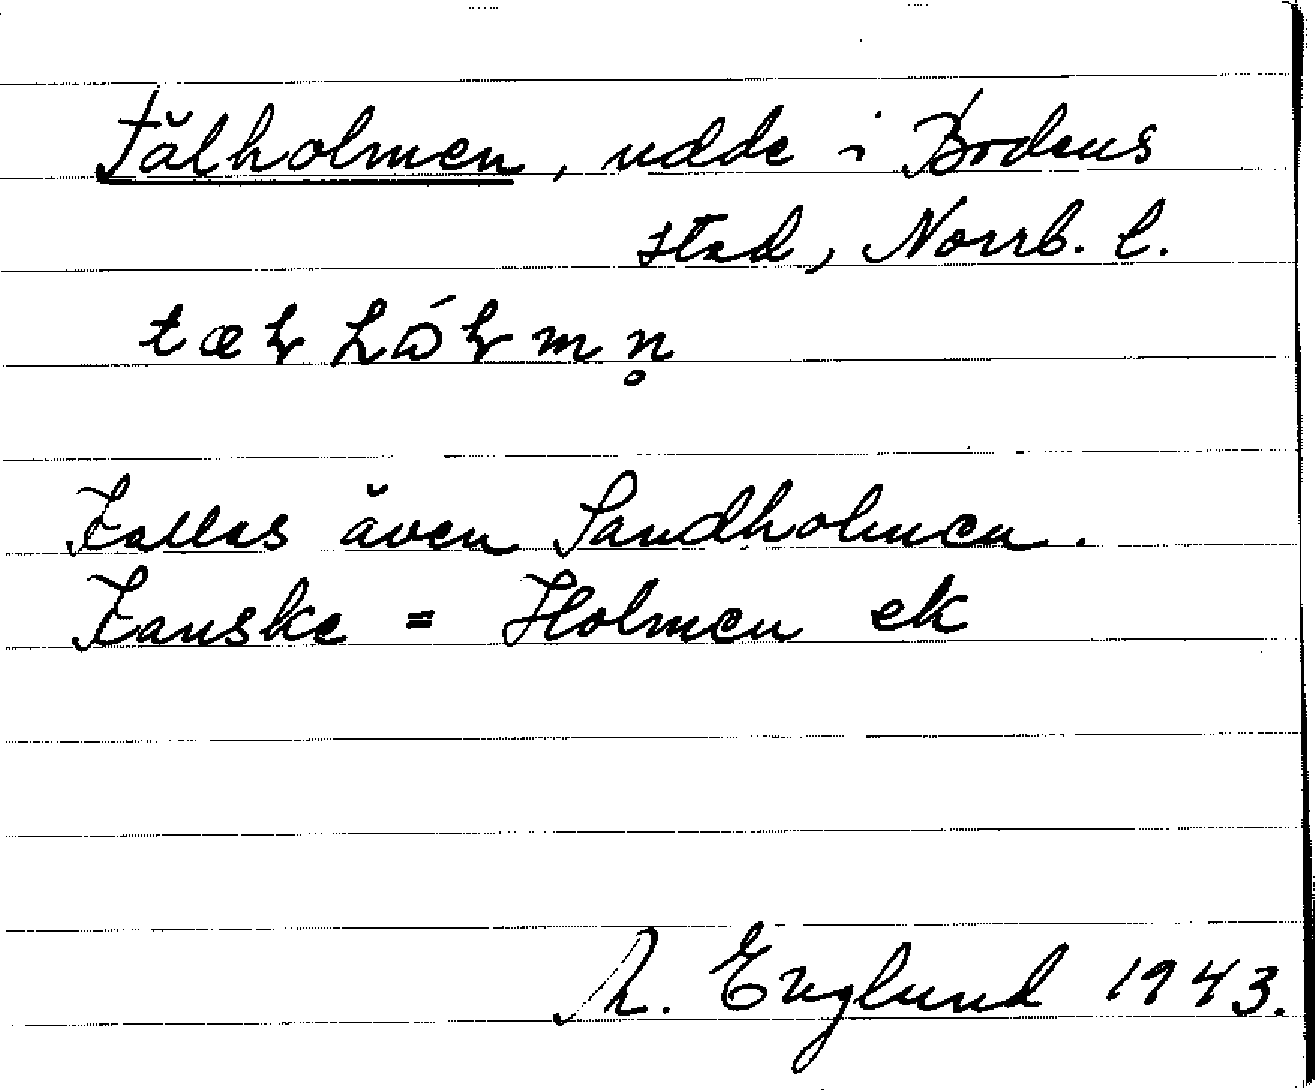 Tälholmen, udde i Bodens
stad, Norrb. l.
Kallas även Sandholmen.
Kanske = Holmen ek
Englund 1943.